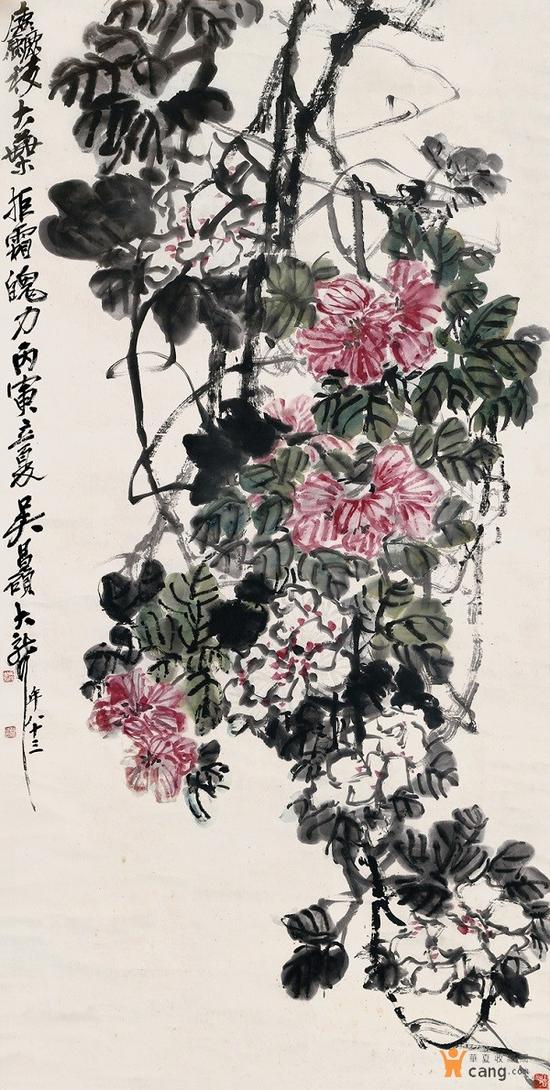 大葉拒霜魄力丙寅立夏吳昌碩大聾年八十三
華夏收
cang.com